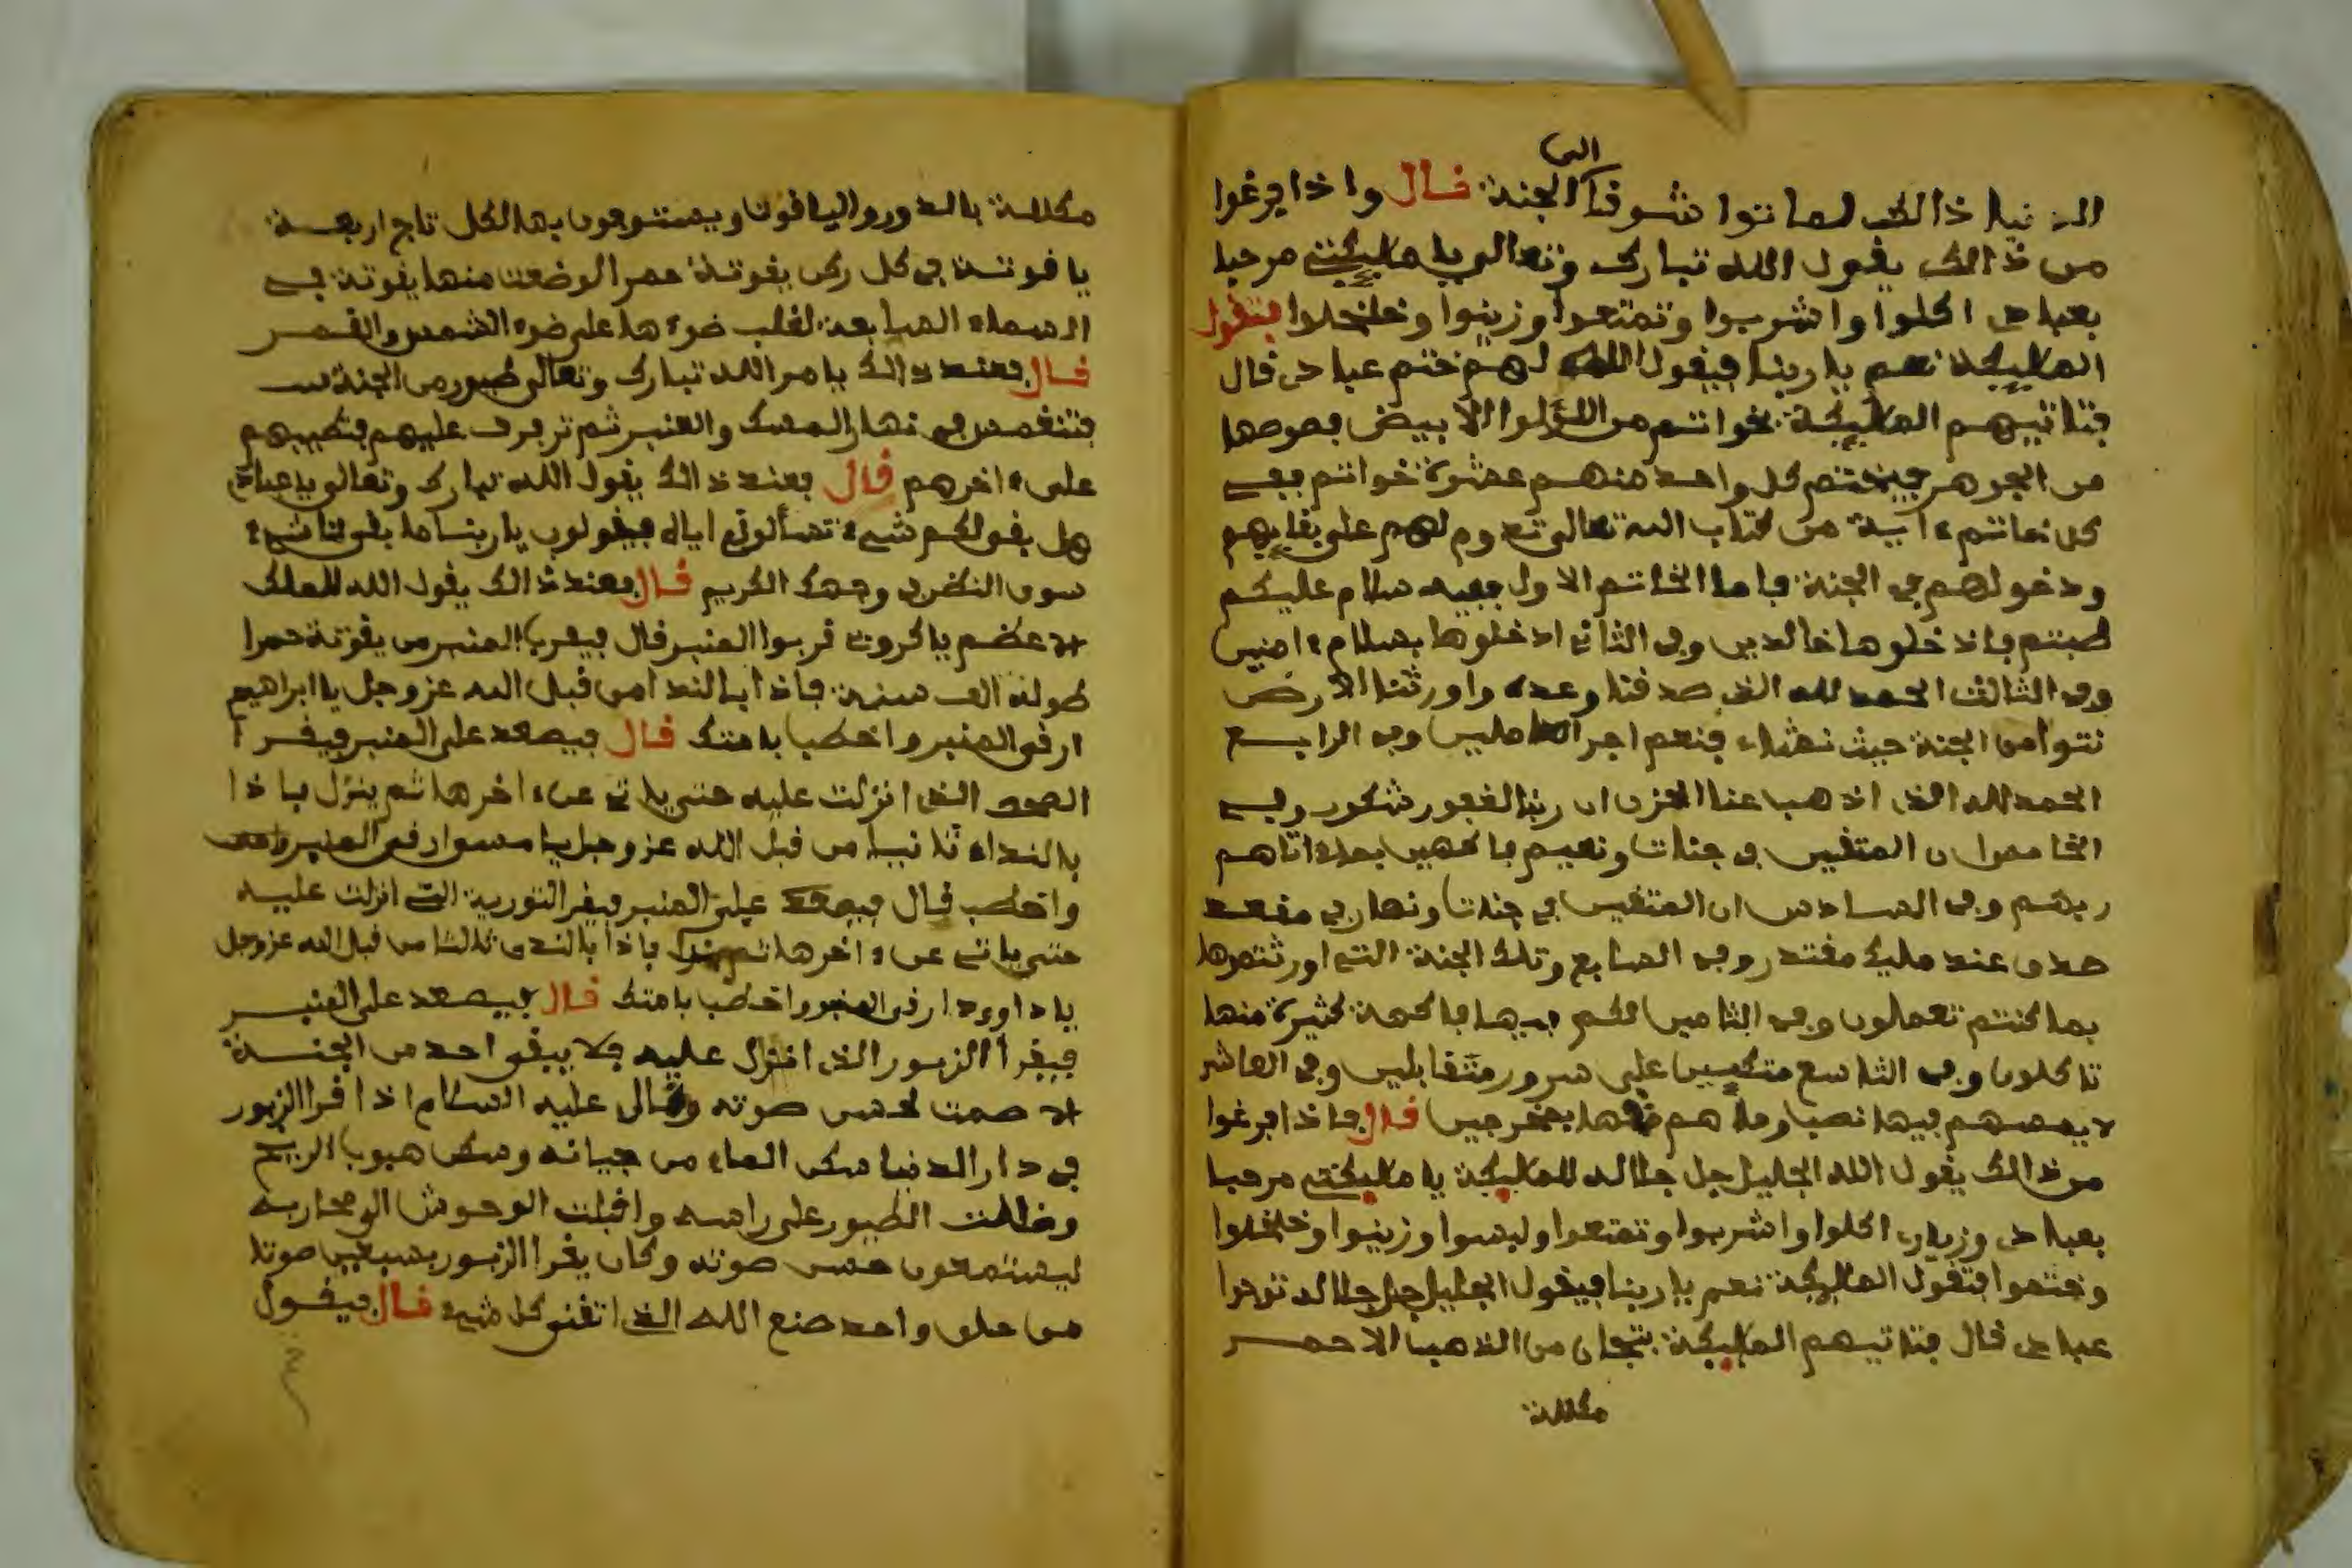 الدنيا ذالك لماتوا شوقا الى الجنة قال واذا فرغوا
من ذالك يقول الله تبارك وتعالى يا مليكتي مرحبا
بعبادى اكلوا واشربوا وتمتعوا وزينوا وخلخلوا فتقول
المليكة نعم يا ربنا فيقول الله لهم ختم عبادى قال
فتاتيهم المليكة بخواتم من اللؤلوا الابيض فصوصها
من الجوهر فيختم كل واحد منهم عشرة خواتم ففي
كل خاتم ءاية من كتاب الله تعالى تدوم لهم على بقايهم
ودخولهم في الجنة فاما الخاتم الاول ففيه سلام عليكم
طبتم فادخلوها خالدين وفى الثاني ادخلوها بسلام ءامنين
وفى الثالث الحمد لله الذى صدقنا وعده واورثنا الارض
نتبوا من الجنة حيث نشاء فنعم اجر العاملين وفى الرابع
الحمد لله الذى اذهب عنا الحزن ان ربنا لغفور شكور وفي
الخامس ان المتقين فى جنات ونعيم فاكهين بما اتاهم
ربهم وفى السادس ان المتقين في جنات ونهار في مقعد
صدق عند مليك مقتدر وفى السابع وتلك الجنة التي اورثتموها
بما كنتم تعملون وفى الثامن لكم فيها فاكهة كثيرة منها
تاكلون وفى التاسع متكيين على سرور متقابلين وفى العاشر
لا يمسهم فيها نصب وما هم منها بمخرجين قال فاذا فرغوا
من ذالك يقول الله الجليل جل جلاله للمليكة يا مليكتي مرحبا
بعبادى وزوارى اكلوا واشربوا وتمتعوا ولبسوا وزينوا وخلخلوا
وختموا فتقول المليكة نعم يا ربنا فيقول الجليل جل جلاله توجوا
عبادى قال فتاتيهم المليكة بتيجان من الذهب الاحمر
مكللة
مكللة بالدور واليافوت ويستوجون بها لكل تاج اربعة
يافوتة في كل ركن يقوتة حمرا لو ضعت منها يقوتة في
السماء السابعة لغلب ضوءها على ضوء الشمس والقمر
قال فعند ذالك يامر الله تبارك وتعالى طيور من الجنة
فتنغمس في نهار المسك والعنبر ثم ترفرف عليهم فتطيبهم
على ءاخرهم قال فعند ذالك يقول الله تبارك وتعالى يا عبادى
هل بقى لكم شيء تسألوني اياه فيقولون يا ربنا ما بقى لنا شيء
سوى النظر في وجهك الكريم قال فعند ذالك يقول الله للملك
الاعظم يا كروبي قربوا المنبر قال فيقرب المنبر من يقوتة حمرا
طوله الف سنة فاذا بالندا من قبل الله عز وجل يا ابراهيم
ارقى المنبر واخطب بامتك قال فيصعد على المنبر فيقرا
الصحف الذى انزلت عليه حتى ياتي عن ءاخرها ثم ينزل فاذا
بالنداء ثانيا من قبل الله عز وجل يا موسى ارقى المنبر
واخطب قال فيصعد على المنبر فيقرا التورية التي انزلت عليه
حتى ياتي عن ءاخرها ثم ينزل فاذا بالندى ثالثا من قبل الله عز وجل
يا داوود ارقى المنبر واخطب بامتك قال فيصعد على المنبر
فيقرا الزبور الذى انزل عليه فلا يبقى احد من الجنة
الا صمت لحسن صوته وكان عليه السلام اذا قرا الزبور
في دار الدنيا سكن الماء من جريانه وسكن هبوب الريح
وظللت الطيور على راسه واقبلت الوحوش الى محاربه
ليستمعون حسن صوته وكان يقرا الزبور بسبعين صوتا
من حلق واحد صنع الله الذى اتقن كل شيء قال فيقول